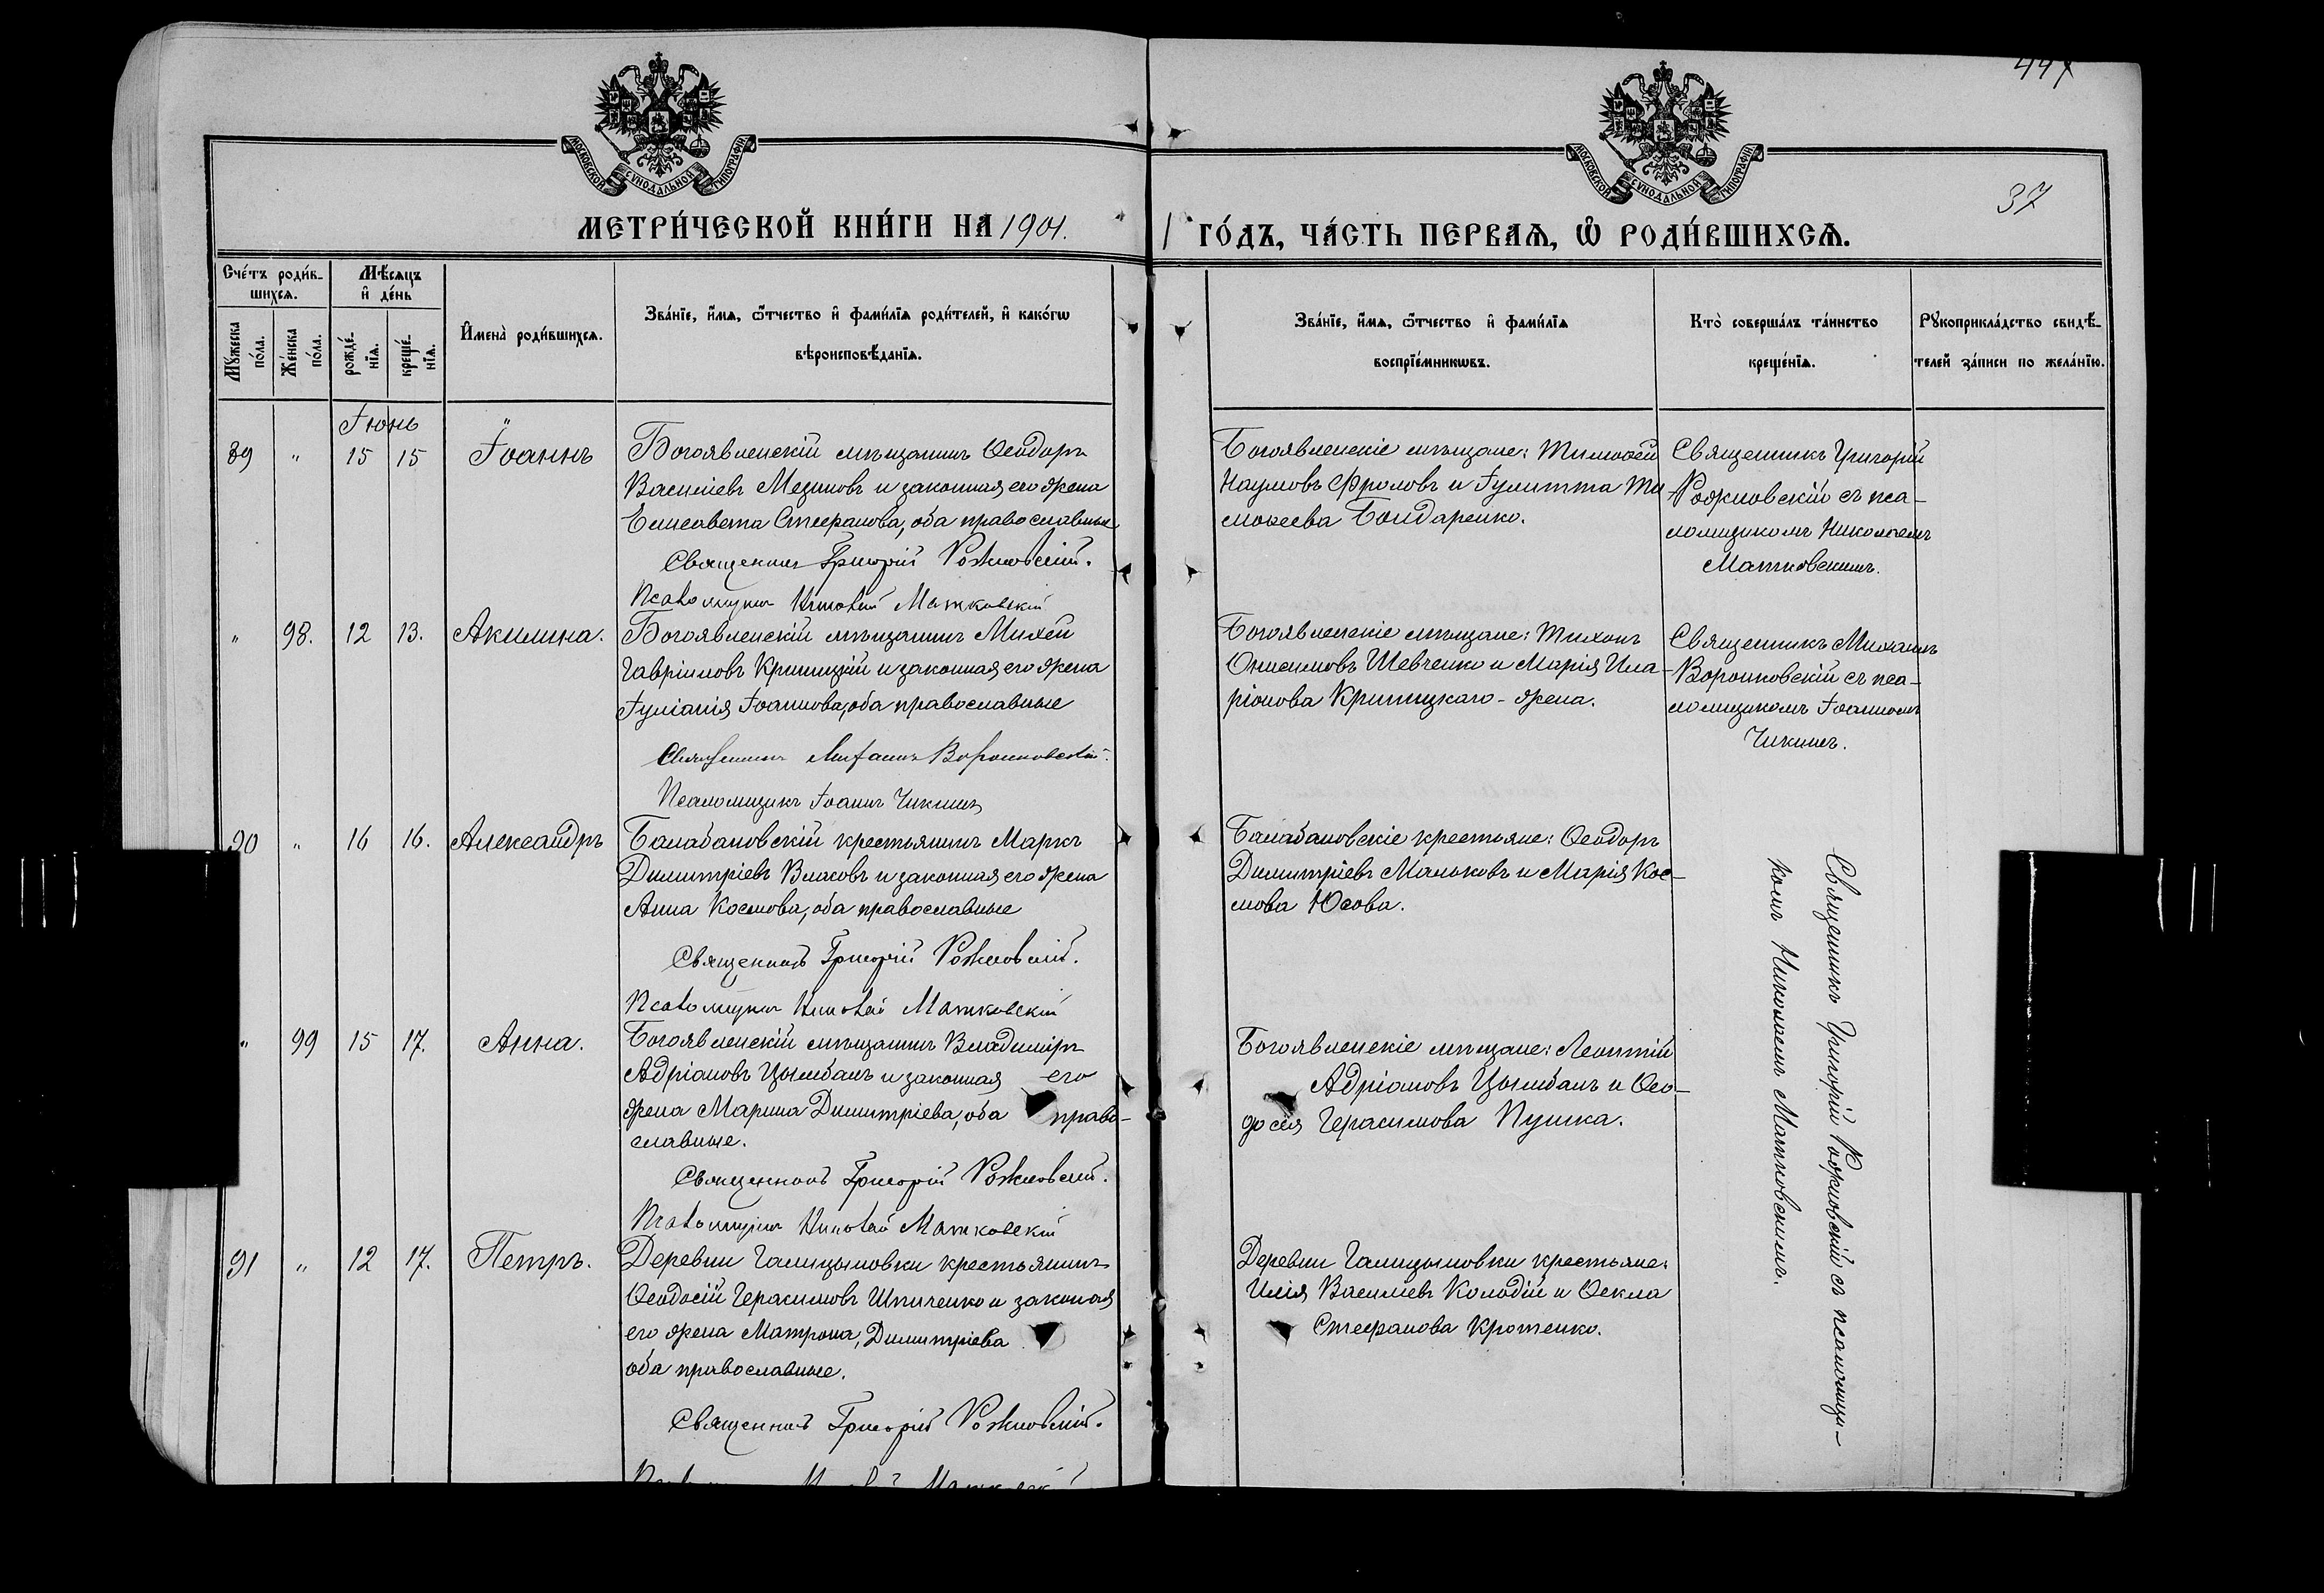 447
МОСКОВСКОЙ СУНОДАЛЬНОЙ ТИПОГРАФІИ
МОСКОВСКОЙ СУНОДАЛЬНОЙ ТИПОГРАФІИ
37
МЕТРИ́ЧЕСКОЙ КНИ́ГИ НА 1901.
ГО́ДЪ, ЧА́СТЬ ПЕРВАѦ, Ѡ҆ РОДИ́ВШИХСѦ.
Сче́тъ роди́в-
шихсѧ.
Мѣ́сѧцъ
и҆ де́нь
Мꙋ́жеска
по́ла.
Же́нска
по́ла.
рожде́-
нїѧ.
креще́-
нїѧ.
И҆мена̀ роди́вшихсѧ.
Зва́нїе, и҆́мѧ, ѻ҆́тчество и҆ фами́лїѧ роди́телей, и҆ како́гѡ
вѣроисповѣ́данїѧ.
Зва́нїе, и҆́мѧ, ѻ҆́тчество и҆ фами́лїѧ
воспрїе́мникѡвъ.
Кто̀ соверша́лъ та́инство
креще́нїѧ.
Рꙋкоприкла́дство свидѣ́-
телей за́писи по жела́нїю.
Іюнь
89 " 15 15 Іоаннъ
Богоявленскій мѣщанинъ Ѳеодоръ
Васильевъ Мезиновъ и законная его жена
Елисавета Стефанова, оба православные
Священникъ Григорій Рожновскій.
Псаломщикъ Николай Матковскій
Богоявленскіе мѣщане: Тимоѳей
Наумовъ Фроловъ и Іулитта Ти
моѳеева Бондаренко.
Священникъ Григорій
Рожновскій съ пса-
ломщикомъ Николаемъ
Матковскимъ.
" 98. 12 13. Акилина.
Богоявленскій мѣщанинъ Михей
Гавріиловъ Криницкій и законная его жена
Іуліанія Іоаннова, оба православные
Священникъ Михаилъ Воронковскій.
Псаломщикъ Іоаннъ Чикинъ
Богоявленскіе мѣщане: Тихонъ
Онисимовъ Шевченко и Марія Ила-
ріонова Криницкаго - жена.
Священникъ Михаилъ
Воронковскій съ пса-
ломщикомъ Іоанномъ
Чикинъ.
90 " 16 16. Александръ
Балабановскій крестьянинъ Маркъ
Димитріевъ Власовъ и законная его жена
Анна Космова, оба православные
Священникъ Григорій Рожновскій.
Псаломщикъ Николай Матковскій
Балабановскіе крестьяне: Ѳеодоръ
Димитріевъ Маньковъ и Марія Кос-
мова Юсова.
Священникъ Григорій Рожновскій съ псаломщи-
комъ Николаемъ Матковскимъ.
" 99 15 17. Анна.
Богоявленскій мѣщанинъ Владиміръ
Адріановъ Цымбалъ и законная его
жена Марина Димитріева, оба право-
славные.
Священникъ Григорій Рожновскій.
Псаломщикъ Николай Матковскій
Богоявленскіе мѣщане: Леонтій
Адріановъ Цымбалъ и Ѳео-
досія Герасимова Пушка.
91 " 12 17. Петръ.
Деревни Галицыновки крестьянинъ
Ѳеодосій Герасимовъ Шпиченко и законая
его жена Матрона, Димитріева
оба православные.
Священникъ Григорій Рожновскій.
Деревни Галицыновки крестьяне:
Илія Васильевъ Колодій и Ѳекла
Стефанова Кротенко.